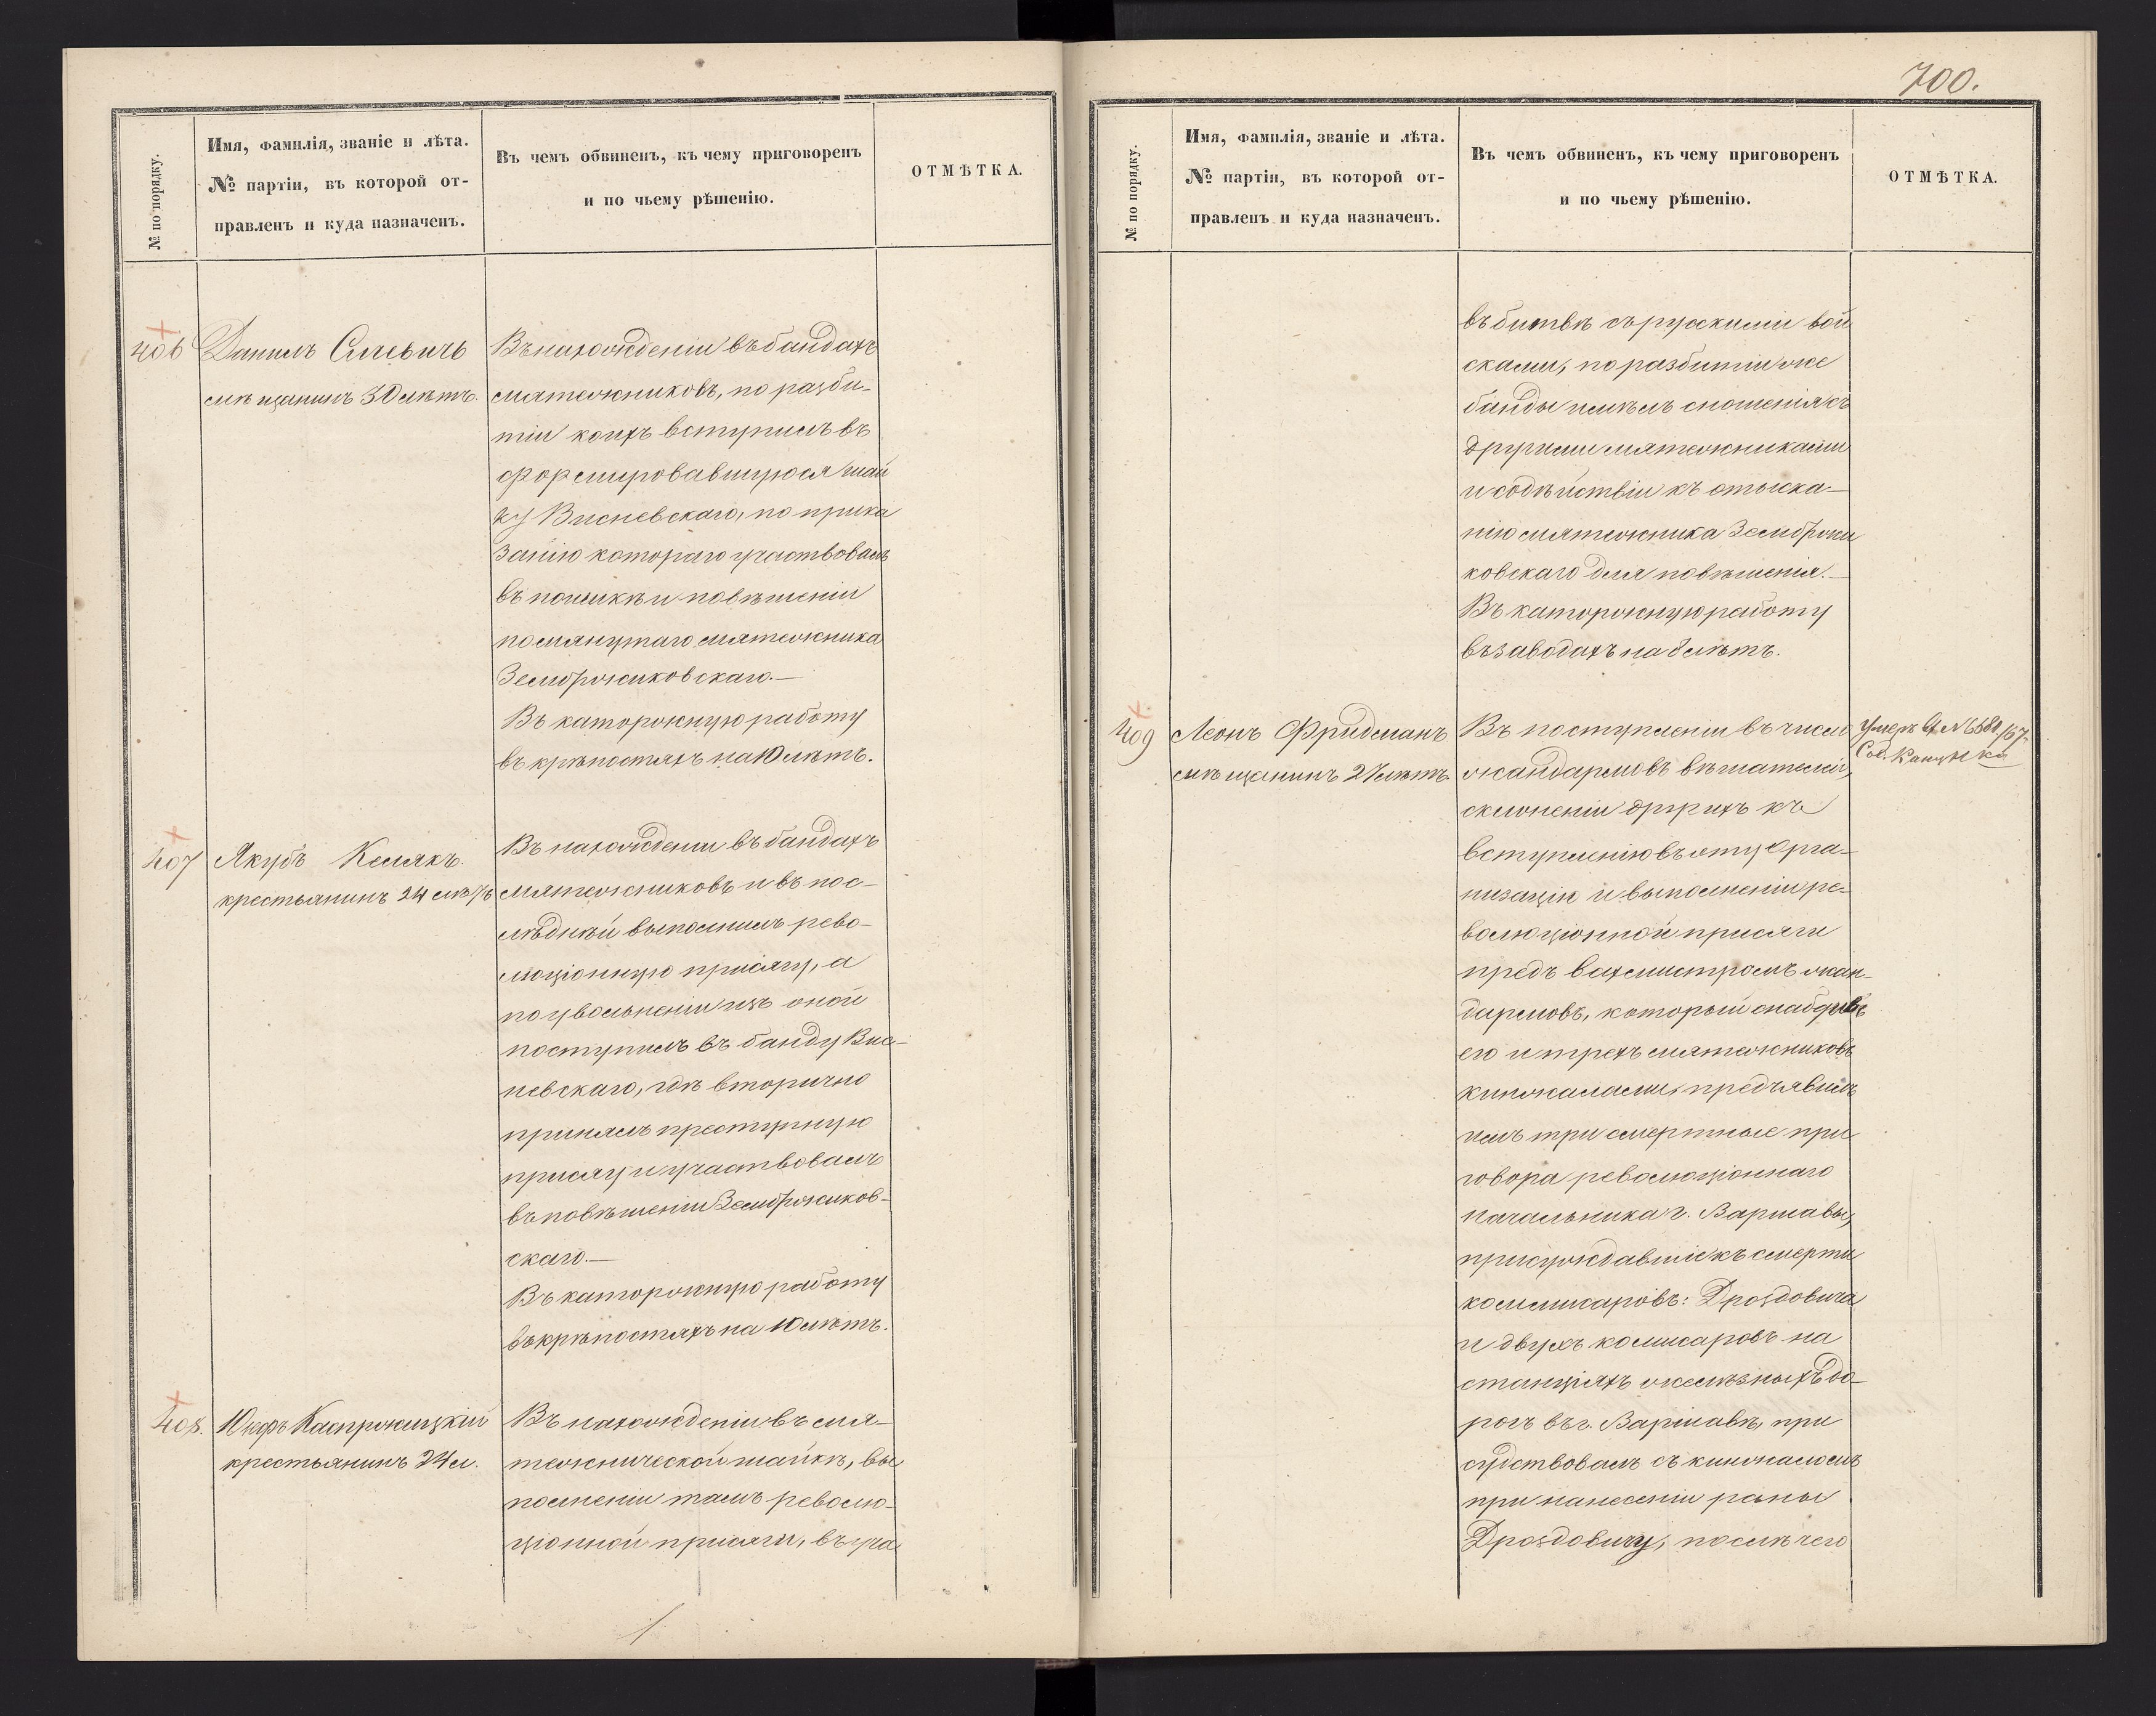 № по порядку.
Имя, Фамилія, званіе и лѣта.
№ партіи, въ которой от-
правленъ и куда назначенъ.
Въ чемъ обвиненъ, къ чему приговоренъ
и по чьему рѣшенію.
ОТМѢТКА.
406
Данилъ
мѣщанинъ 30 лѣтъ.
Въ нахожденіи въ бандахъ
мятежниковъ, по разби-
тіи коихъ вступилъ въ
формировавшуюся шай
ку Висневскаго, по прика
занію котораго участвовалъ
въ поимкѣ и повѣшеніи
помянутаго мятежника
Земброжиковскаго.—
Въ каторжную работу
въ крѣпостяхъ на 10 лѣтъ.
407
Якубъ Келякъ.
крестьянинъ 24 лѣтъ
Въ нахожденіи въ бандахъ
мятежниковъ и въ пос-
лѣдней выполнилъ рево-
люціонную присягу, а
по увольненіи изъ оной
поступилъ въ банду Вис-
невскаго, гдѣ вторично
принялъ преступную
присягу и участвовалъ
въ повѣшеніи Земброжиков-
скаго.—
Въ каторжную работу
въ крѣпостяхъ на 10 лѣтъ.
408.
Юзефъ Каспржицкій
крестьянинъ 24 л.
Въ нахожденіи въ мя-
тежнической шайкѣ, вы
полненіи тамъ револю-
ціонной присяги, въ уча
700.
№ по порядку.
Имя, Фамилія, званіе и лѣта.
№ партіи, въ которой от-
правленъ и куда назначенъ.
Въ чемъ обвиненъ, къ чему приговоренъ
и по чьему рѣшенію.
ОТМѢТКА.
въ битвѣ съ русскими вой
сками, по разбитіи же
банды имѣлъ сношенія съ
другими мятежниками
и содѣйствіи къ отыска-
нію мятежника Земброжи
ковскаго для повѣшенія.—
Въ каторжную работу
въ заводахъ на 8 лѣтъ.
409
Леонъ Фридманъ
мѣщанинъ 27 лѣтъ.
Въ поступленіи въ число
жандармовъ вѣшателей,
склоненіи другихъ къ
вступленію въ эту орга-
низацію и выполненіи ре-
волюціонной присяги
предъ вахмистромъ жан-
дармовъ, который снабдивъ
его и трехъ мятежниковъ
кинжалами, предъявилъ
имъ три смертные при
говора революціоннаго
начальника г. Варшавы,
присуждавшіе къ смерти
коммисаровъ: Дроздовича
и двухъ комисаровъ на
станціяхъ желѣзныхъ до-
рогъ въ г. Варшавѣ, при
сутствовалъ съ кинжаломъ
при нанесеніи раны
Дроздовичу, послѣ чего
Умеръ № 6680/67.